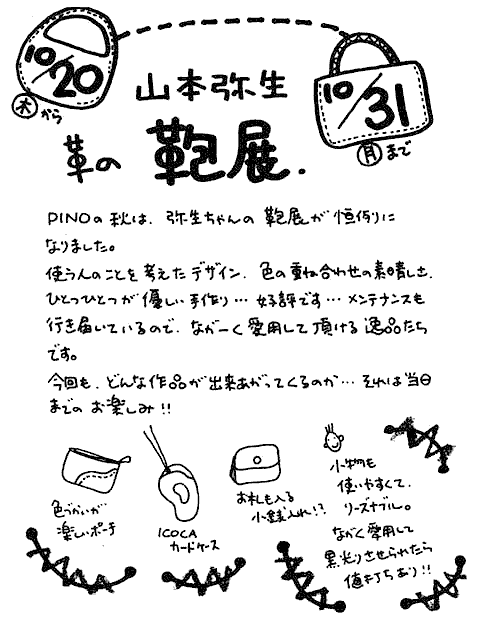 10/20
木から
10/31
月まで
山本弥生
革の 鞄展.
PINOの秋は、弥生ちゃんの 鞄展が 恒例に
なりました。
使う人のことを考えたデザイン、色の重ね合わせの素晴しさ、
ひとつひとつが優しい手作り… 好評です… メンテナンスも
行き届いているので、ながーく愛用して頂ける逸品たち
です。
今回も、どんな作品が出来あがってくるのか… それは当日
までの お楽しみ!!
色づかいが
楽しいポーチ
ICOCA
カードケース
お札も入る
小銭入れ!?
小物も
使いやすくて、
リーズナブル。
ながく愛用して
黒光りさせられたら
値打ちあり!!